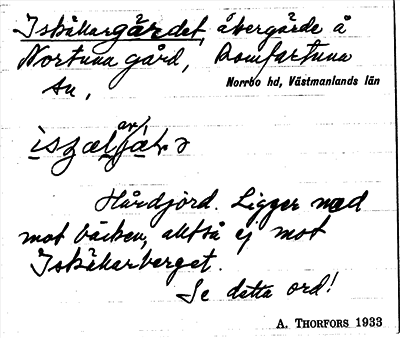 Iskällargärdet, åkergärde å
Nortuna gård, Romfartuna
sn,
Norrbo hd, Västmanlands län
av
Hårdjord. Ligger ned
mot bäcken, alltså ej mot
Iskällarberget.
Se detta ord!
A. THORFORS 1933